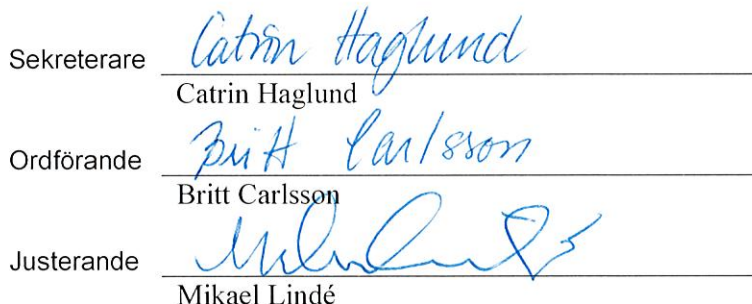 Sekreterare Catrin Haglund
Catrin Haglund
Ordförande Britt Carlsson
Britt Carlsson
Justerande
Mikael Lindé